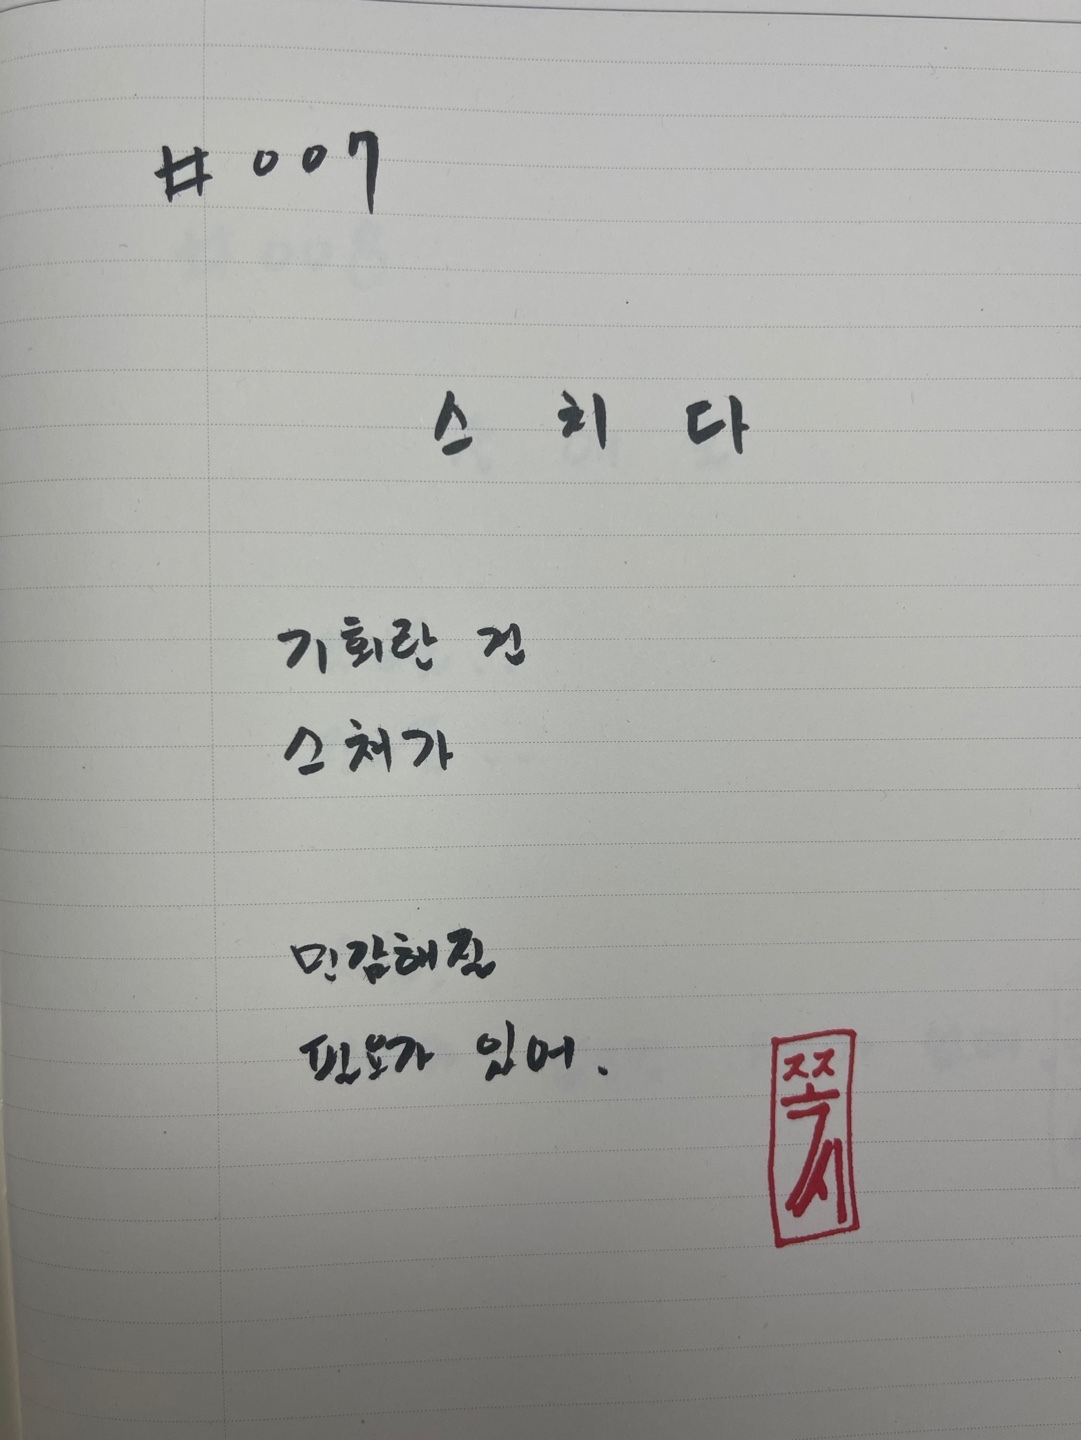 #007
스치다
기회란 건
스쳐가
민감해질
필요가 있어.
쪽시